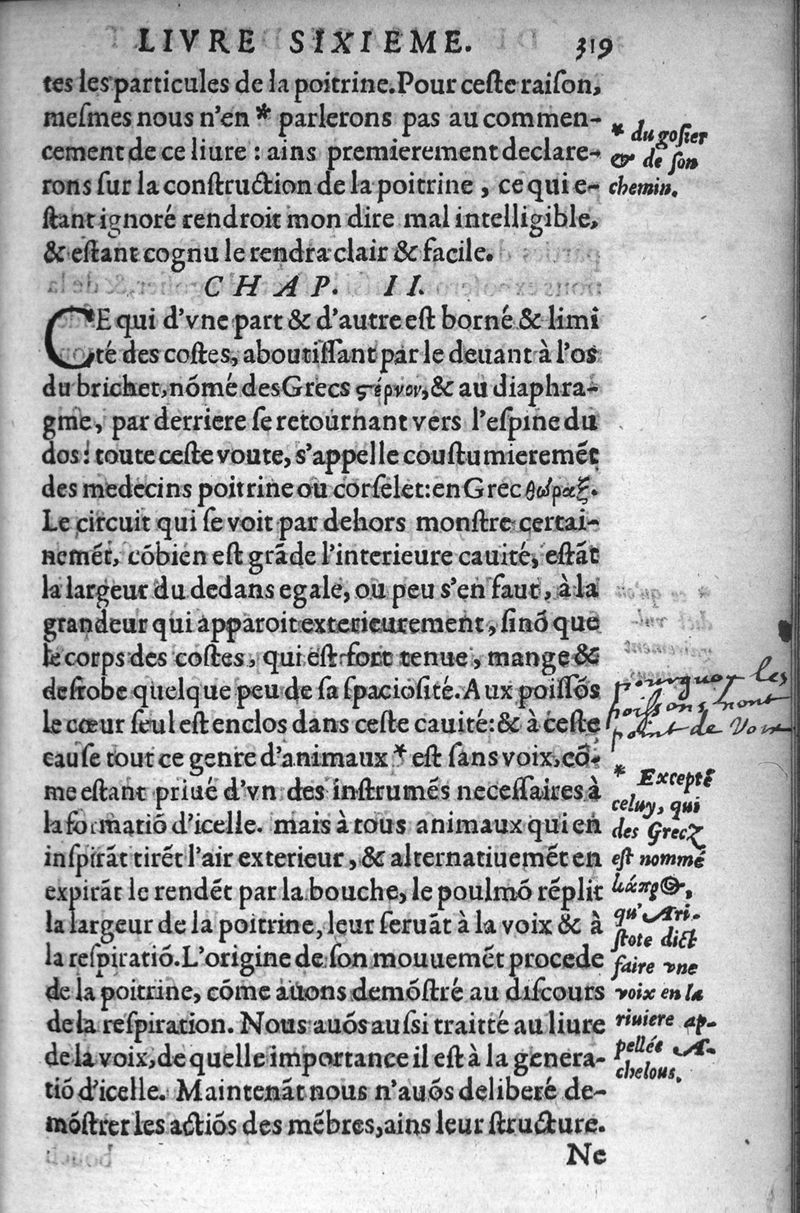 LIVRE SIXIEME. 319
tes les particules de la poitrine. Pour ceste raiſon,
meſmes nous n'en * parlerons pas au commen-
cement de ce liure : ains premierement declare-
rons ſur la conſtruction de la poitrine , ce qui e-
ſtant ignoré rendroit mon dire mal intelligible,
& eſtant cognu le rendra clair & facile.
* du goſier
& de ſon
chemin.
CHAP. II.
CE qui d'vne part & d'autre eſt borné & limi
té des coſtes, aboutiſſant par le deuant à l'os
du brichet, nõmé des Grecs ϛέρνον, & au diaphra-
gme, par derriere ſe retournant vers l'eſpine du
dos : toute ceſte voute, s'appelle couſtumieremẽt
des medecins poitrine ou corſelet : en Grec θώραξ.
Le circuit qui ſe voit par dehors monſtre certai-
nemẽt, cõbien eſt grãde l'interieure cauité, eſtãt
la largeur du dedans egale, ou peu s'en faut, à la
grandeur qui apparoit exterieurement, ſinõ que
le corps des coſtes, qui eſt fort tenue, mange &
deſrobe quelque peu de ſa ſpacioſité. Aux poiſſõs
le cœur ſeul eſt enclos dans ceſte cauité: & à ceſte
cauſe tout ce genre d'animaux * eſt ſans voix, cõ-
me eſtant priué d'vn des inſtrumẽs neceſſaires à
la formatiõ d'icelle. mais à tous animaux qui en
inſpirãt tirẽt l'air exterieur, & alternatiuemẽt en
expirãt le rendẽt par la bouche, le poulmõ rẽplit
la largeur de la poitrine, leur ſeruãt à la voix & à
la reſpiratiõ. L'origine de ſon mouuemẽt procede
de la poitrine, cõme auons demõſtré au diſcours
de la reſpiration. Nous auõs auſsi traitté au liure
de la voix, de quelle importance il eſt à la genera-
tiõ d'icelle. Maintenãt nous n'auõs deliberé de-
mõſtrer les actiõs des mẽbres, ains leur ſtructure.
pourquoy les
poissons nont
point de Voix
* Excepté
celuy, qui
des Grecz
eſt nommé
κάπρος,
qu'Ari-
ſtote dict
faire vne
voix en la
riuiere ap-
pellée A-
chelous.
Ne